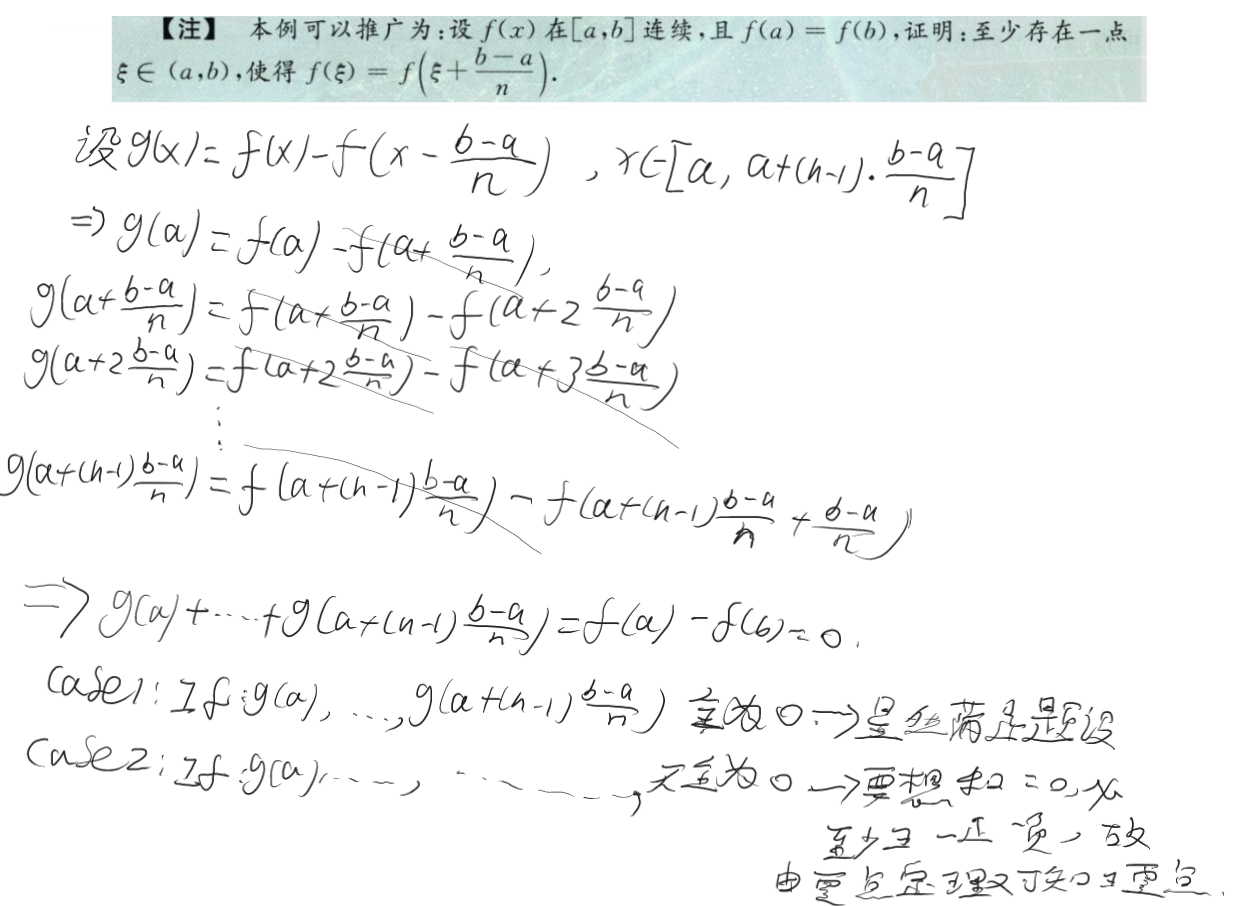 【注】 本例可以推广为:设 f(x) 在[a,b]连续,且 f(a) = f(b),证明:至少存在一点
ξ∈(a,b),使得 f(ξ) = f(ξ+\frac{b-a}{n}).
设 g(x) = f(x) - f(x - \frac{b-a}{n}) , x∈[a, a+(n-1)·\frac{b-a}{n}]
⇒ g(a) = f(a) - f(a+\frac{b-a}{n}),
g(a+\frac{b-a}{n}) = f(a+\frac{b-a}{n}) - f(a+2\frac{b-a}{n})
g(a+2\frac{b-a}{n}) = f(a+2\frac{b-a}{n}) - f(a+3\frac{b-a}{n})
⋮
g(a+(n-1)\frac{b-a}{n}) = f(a+(n-1)\frac{b-a}{n}) - f(a+(n-1)\frac{b-a}{n}+\frac{b-a}{n})
⇒ g(a)+⋯+g(a+(n-1)\frac{b-a}{n}) = f(a) - f(b) = 0.
Case1: If: g(a), …, g(a+(n-1)\frac{b-a}{n}) 全为0 → 显然满足题设
Case2: If: g(a)……, ………, 不全为0 → 要想和=0,必
至少∃一正一负,故
由零点定理可知∃零点.